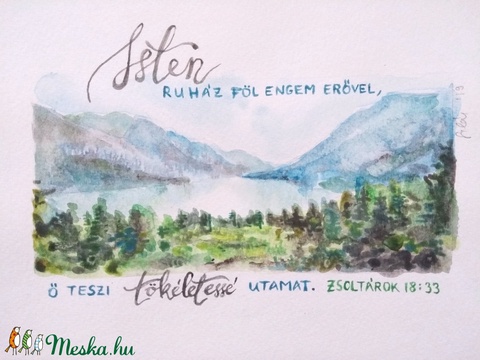 Isten
RUHÁZ FÖL ENGEM ERŐVEL,
Ő TESZI tökéletessé UTAMAT. ZSOLTÁROK 18:33
Meska.hu